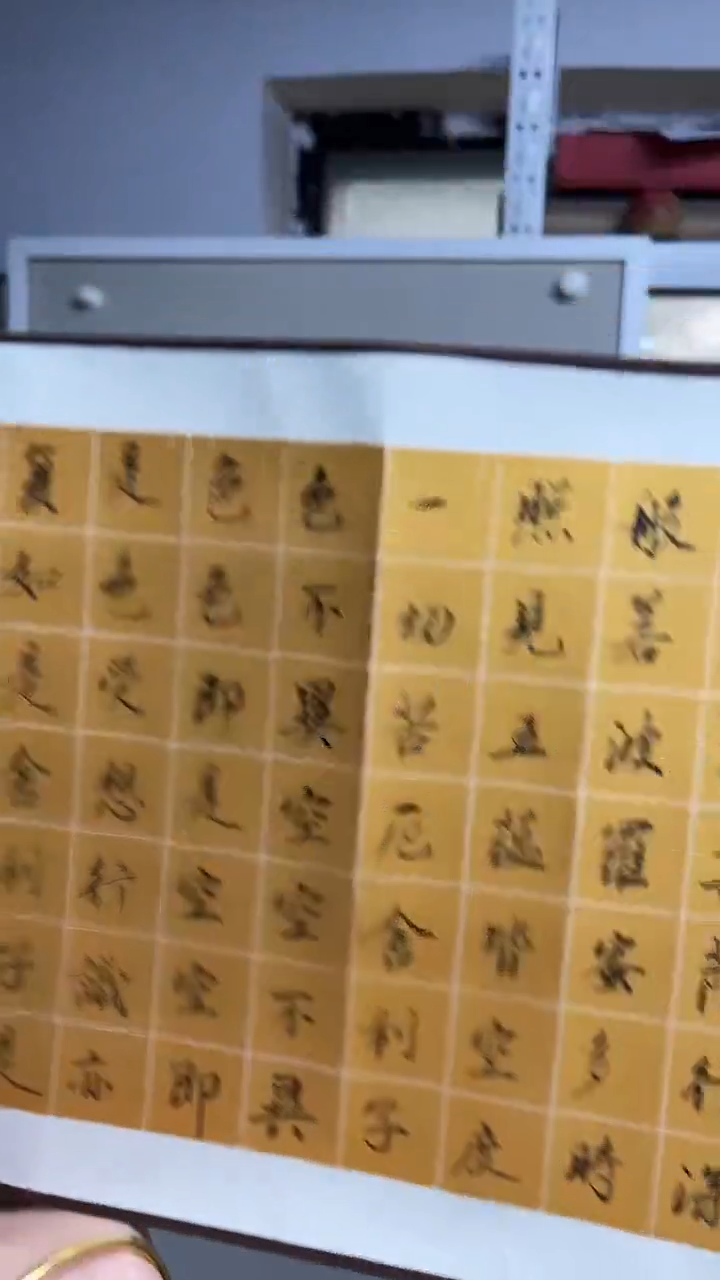 般若波羅蜜多時
照見五蘊皆空度
一切苦厄舍利子
色不異空空不異
色色即是空空即
是色受想行識亦
復如是舍利子是